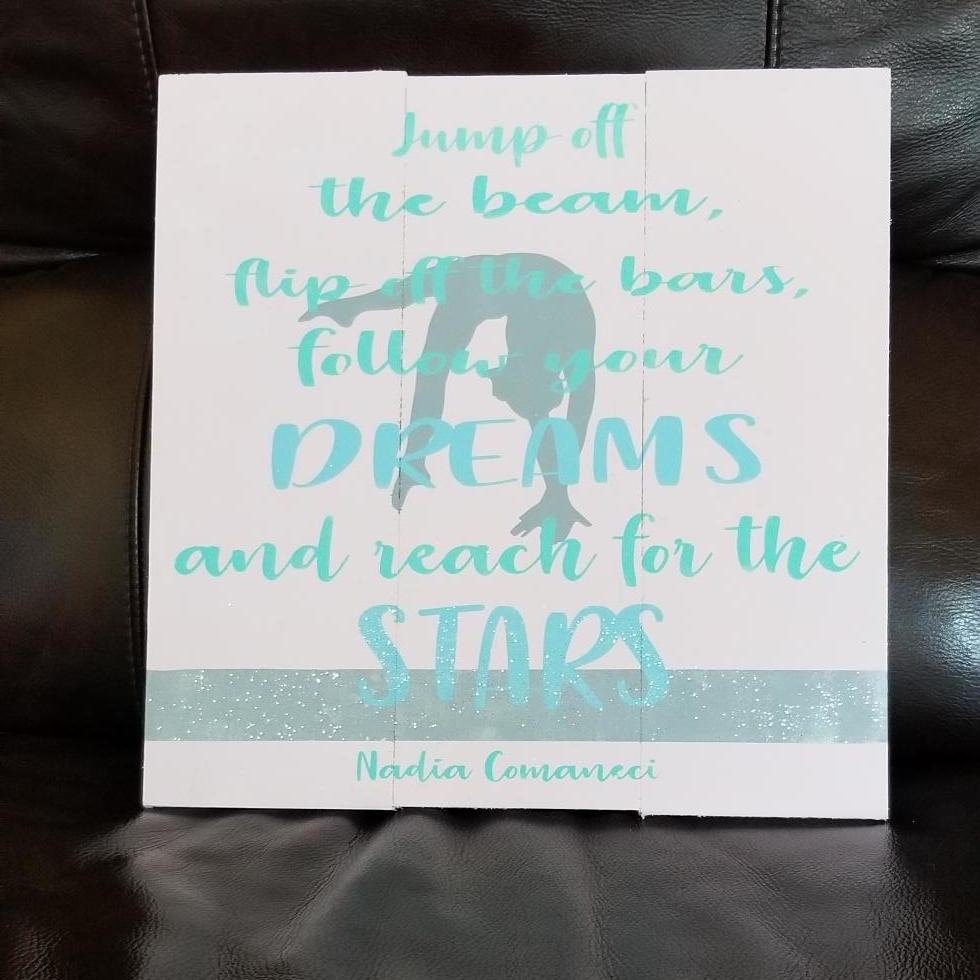 Jump off
the beam,
flip off the bars,
follow your
DREAMS
and reach for the
STARS
Nadia Comaneci